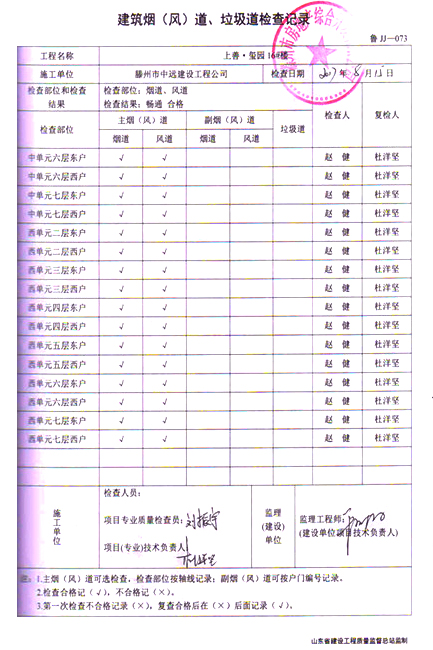 建筑烟（风）道、垃圾道检查记录
鲁 JJ—073
工程名称 上善·玺园 16#楼
施工单位 滕州市中远建设工程公司 检查日期 年 8 月 日
检查部位和检查结果 检查部位：烟道、风道
检查结果：畅通 合格
检查部位 主烟（风）道 副烟（风）道 垃圾道 检查人 复检人
烟道 风道 烟道 风道
中单元六层东户 √ √ 赵 健 杜洋坚
中单元六层西户 √ √ 赵 健 杜洋坚
中单元七层东户 √ √ 赵 健 杜洋坚
中单元七层西户 √ √ 赵 健 杜洋坚
西单元二层东户 √ √ 赵 健 杜洋坚
西单元二层西户 √ √ 赵 健 杜洋坚
西单元三层东户 √ √ 赵 健 杜洋坚
西单元三层西户 √ √ 赵 健 杜洋坚
西单元四层东户 √ √ 赵 健 杜洋坚
西单元四层西户 √ √ 赵 健 杜洋坚
西单元五层东户 √ √ 赵 健 杜洋坚
西单元五层西户 √ √ 赵 健 杜洋坚
西单元六层东户 √ √ 赵 健 杜洋坚
西单元六层西户 √ √ 赵 健 杜洋坚
西单元七层东户 √ √ 赵 健 杜洋坚
西单元七层西户 √ √ 赵 健 杜洋坚
施工单位 检查人员：
项目专业质量检查员：
项目(专业)技术负责人
监理(建设)单位 监理工程师：
(建设单位项目技术负责人)
注：1.主烟（风）道可选检查，检查部位按轴线记录；副烟（风）道可按户门编号记录。
2.检查合格记（√），不合格记（×）。
3.第一次检查不合格记录（×），复查合格后在（×）后面记录（√）。
山东省建设工程质量监督总站监制